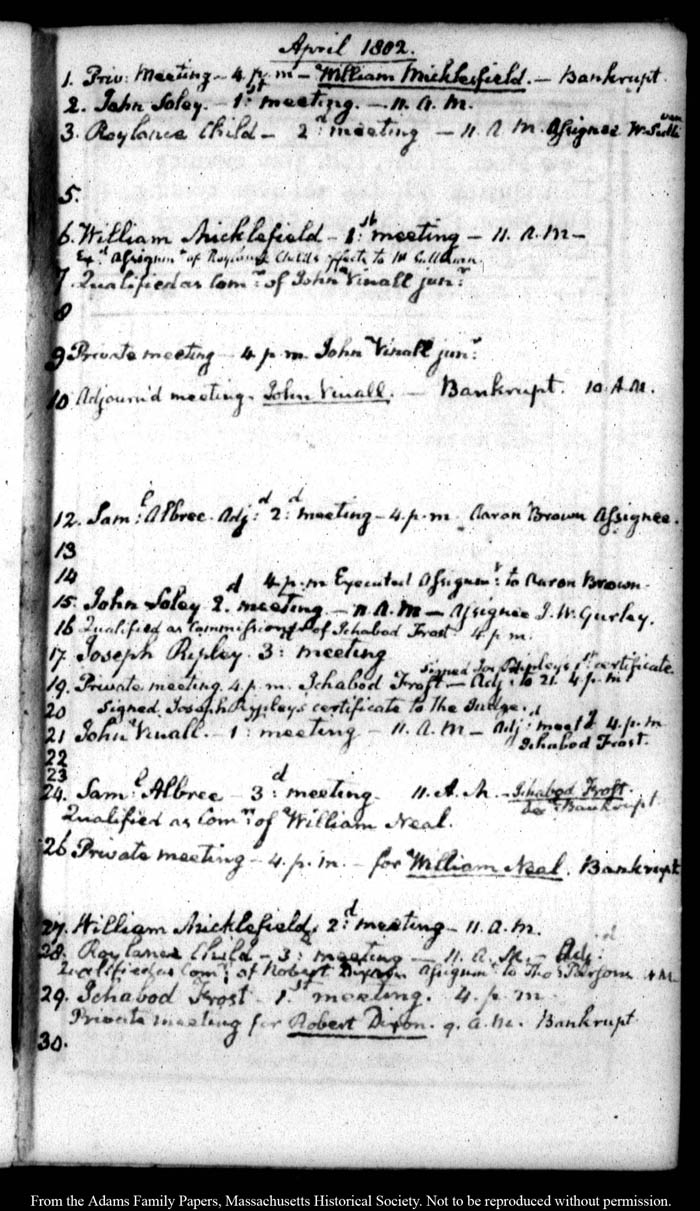 April 1802.
1. Priv: Meeting - 4. p. m - William Micklefield. - Bankrupt.
2. John Soley. - 1st meeting. - 11. A. M.
3. Roylance Child - 2d meeting - 11. A. M. Assignee W. Sullivan
5.
6. William Micklefield - 1st meeting - 11. a. m -
Exd Assignmt of Roylance Childs effects to W Sullivan.
7 Qualified as Comr of John Vinall junr
8
9 Private meeting - 4 p. m. John Vinall junr:
10 Adjourn'd meeting. John Vinall. - Bankrupt. 10. A. M.
12. Saml: Albree. Adjd: 2d: meeting - 4. p. m. Aaron Brown Assignee.
13
14 4. p. m Executed Assignmt: to Aaron Brown.
15. John Soley 2d. meeting - 11. A. M - Assignee J. W. Gurley.
16 Qualified as Commissioner of Ichabod Frost 4 p. m.
17. Joseph Ripley. 3: meeting
signed Jos Ripleys 1st certificate.
19. Private meeting. 4. p. m. Ichabod Frost - Adj: to 21. 4 p. m
20 signed Joseph Rypleys certificate to the Judge.
21 John Vinall. - 1: meeting - 11. A. M - Adjd: meetg 4. p. m
Ichabod Frost.
22
23
24. Saml: Albree - 3d: meeting. 11. A. M. - Ichabod Frost.
Bankrupt
Qualified as Comr: of William Neal.
26 Private meeting - 4. p. m. - for William Neal. Bankrupt
27. William Micklefield. 2d: meeting - 11. a. m.
28. Roylance Child - 3: meeting - 11. A. M. - Adjd.
Qualified as Comr: of Robert Dixon Assignmt to Tho: Parsons
29. Ichabod Frost - 1st meeting. 4. p. m
Private meeting for Robert Dixon. 9. a. m. Bankrupt
30.
From the Adams Family Papers, Massachusetts Historical Society. Not to be reproduced without permission.